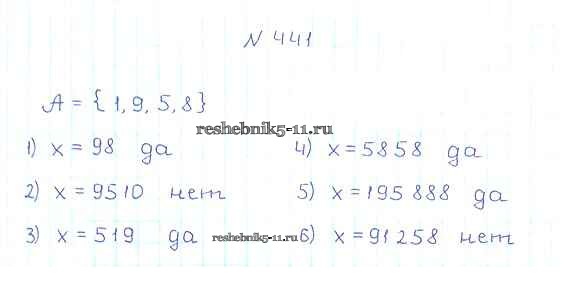 N 441
A = {1, 9, 5, 8}
reshebnik5-11.ru
1) x = 98 да
2) x = 9510 нет
3) x = 519 да
reshebnik5-11.ru
4) x = 5858 да
5) x = 195 888 да
6) x = 91 258 нет